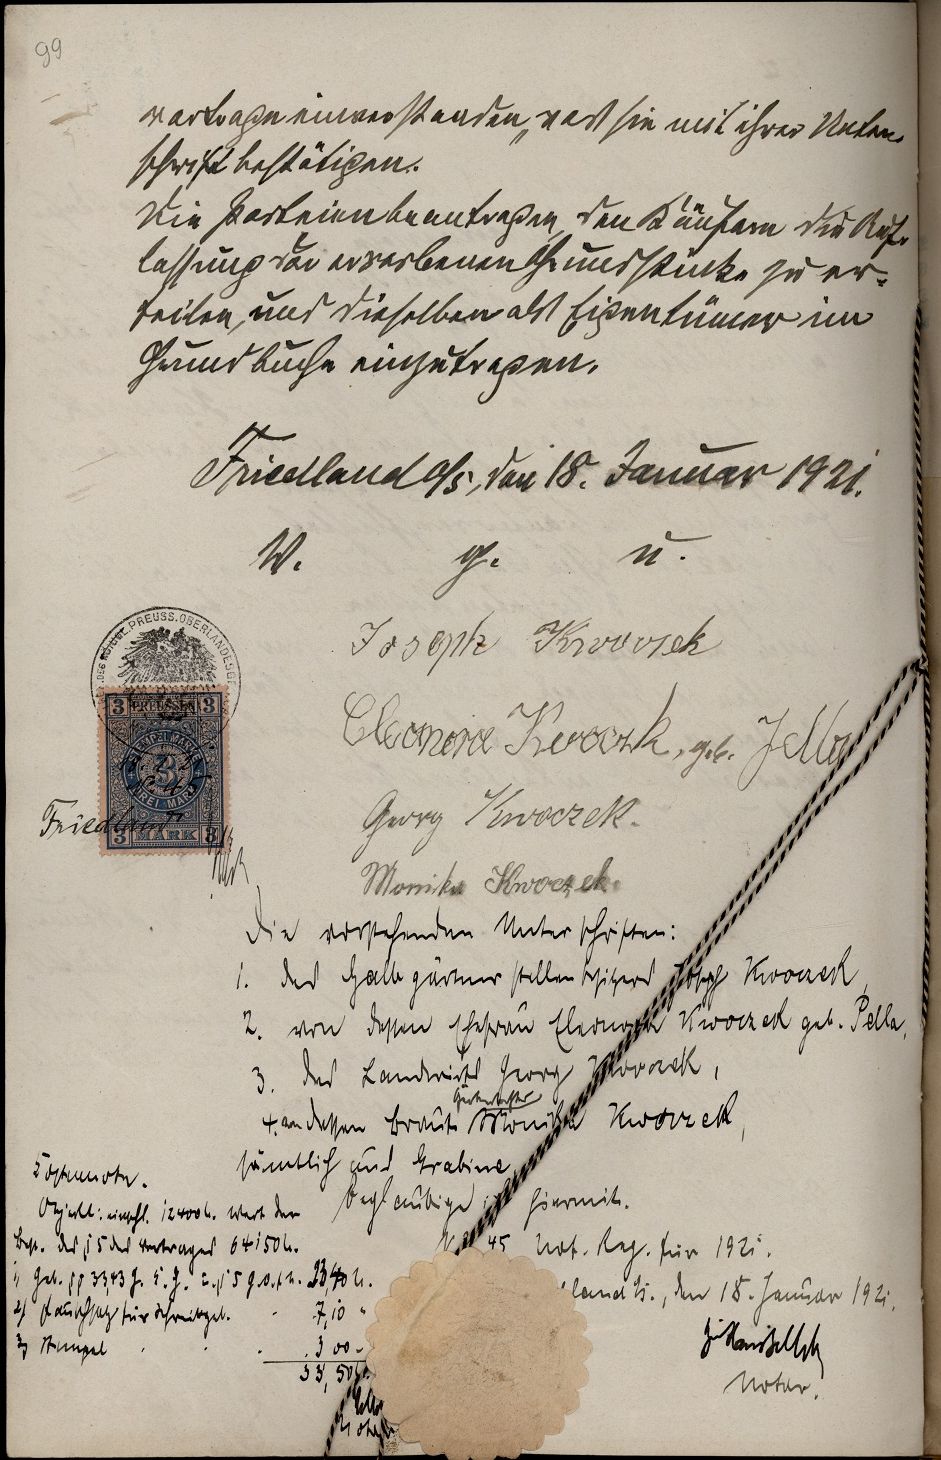 99
vertrage einverstanden, was sie mit ihrer Unter-
schrift bestätigen.
Die Parteien beantragen, den Käufern die Auf-
lassung der erworbenen Grundstücke zu er-
teilen, und dieselben als Eigentümer im
Grundbuche einzutragen.
Friedland o/s, den 18. Januar 1921.
v. g. u.
Joseph Kwoczek
Eleonore Kwoczek, geb. Pella
Georg Kwoczek.
Monika Kwoczek.
PREUSS. OBERLANDESGE
3 PREUSSEN 3
STEMPELMARKE
3
DREI MARK
3 MARK 3
Friedland
Die vorstehenden Unterschriften:
1. des Halbgärtnerstellenbesitzers Joseph Kwoczek,
2. von dessen Ehefrau Eleonore Kwoczek geb. Pella,
3. des Landwirts Georg Kwoczek,
4. von dessen Braut Monika Kwoczek,
sämtlich aus Grabine
beglaubige ich hiermit.
45 Not. Reg. für 1921.
land o/s., den 18. Januar 1921.
Notar.
Kostennote.
Objekt: einschl. 12400 M. Wert der
des § 5 des Vertrages 64150 M.
2) Pauschsatz für Schreibgeb. 7,10 "
3) Stempel 3 00
33,50
Notar